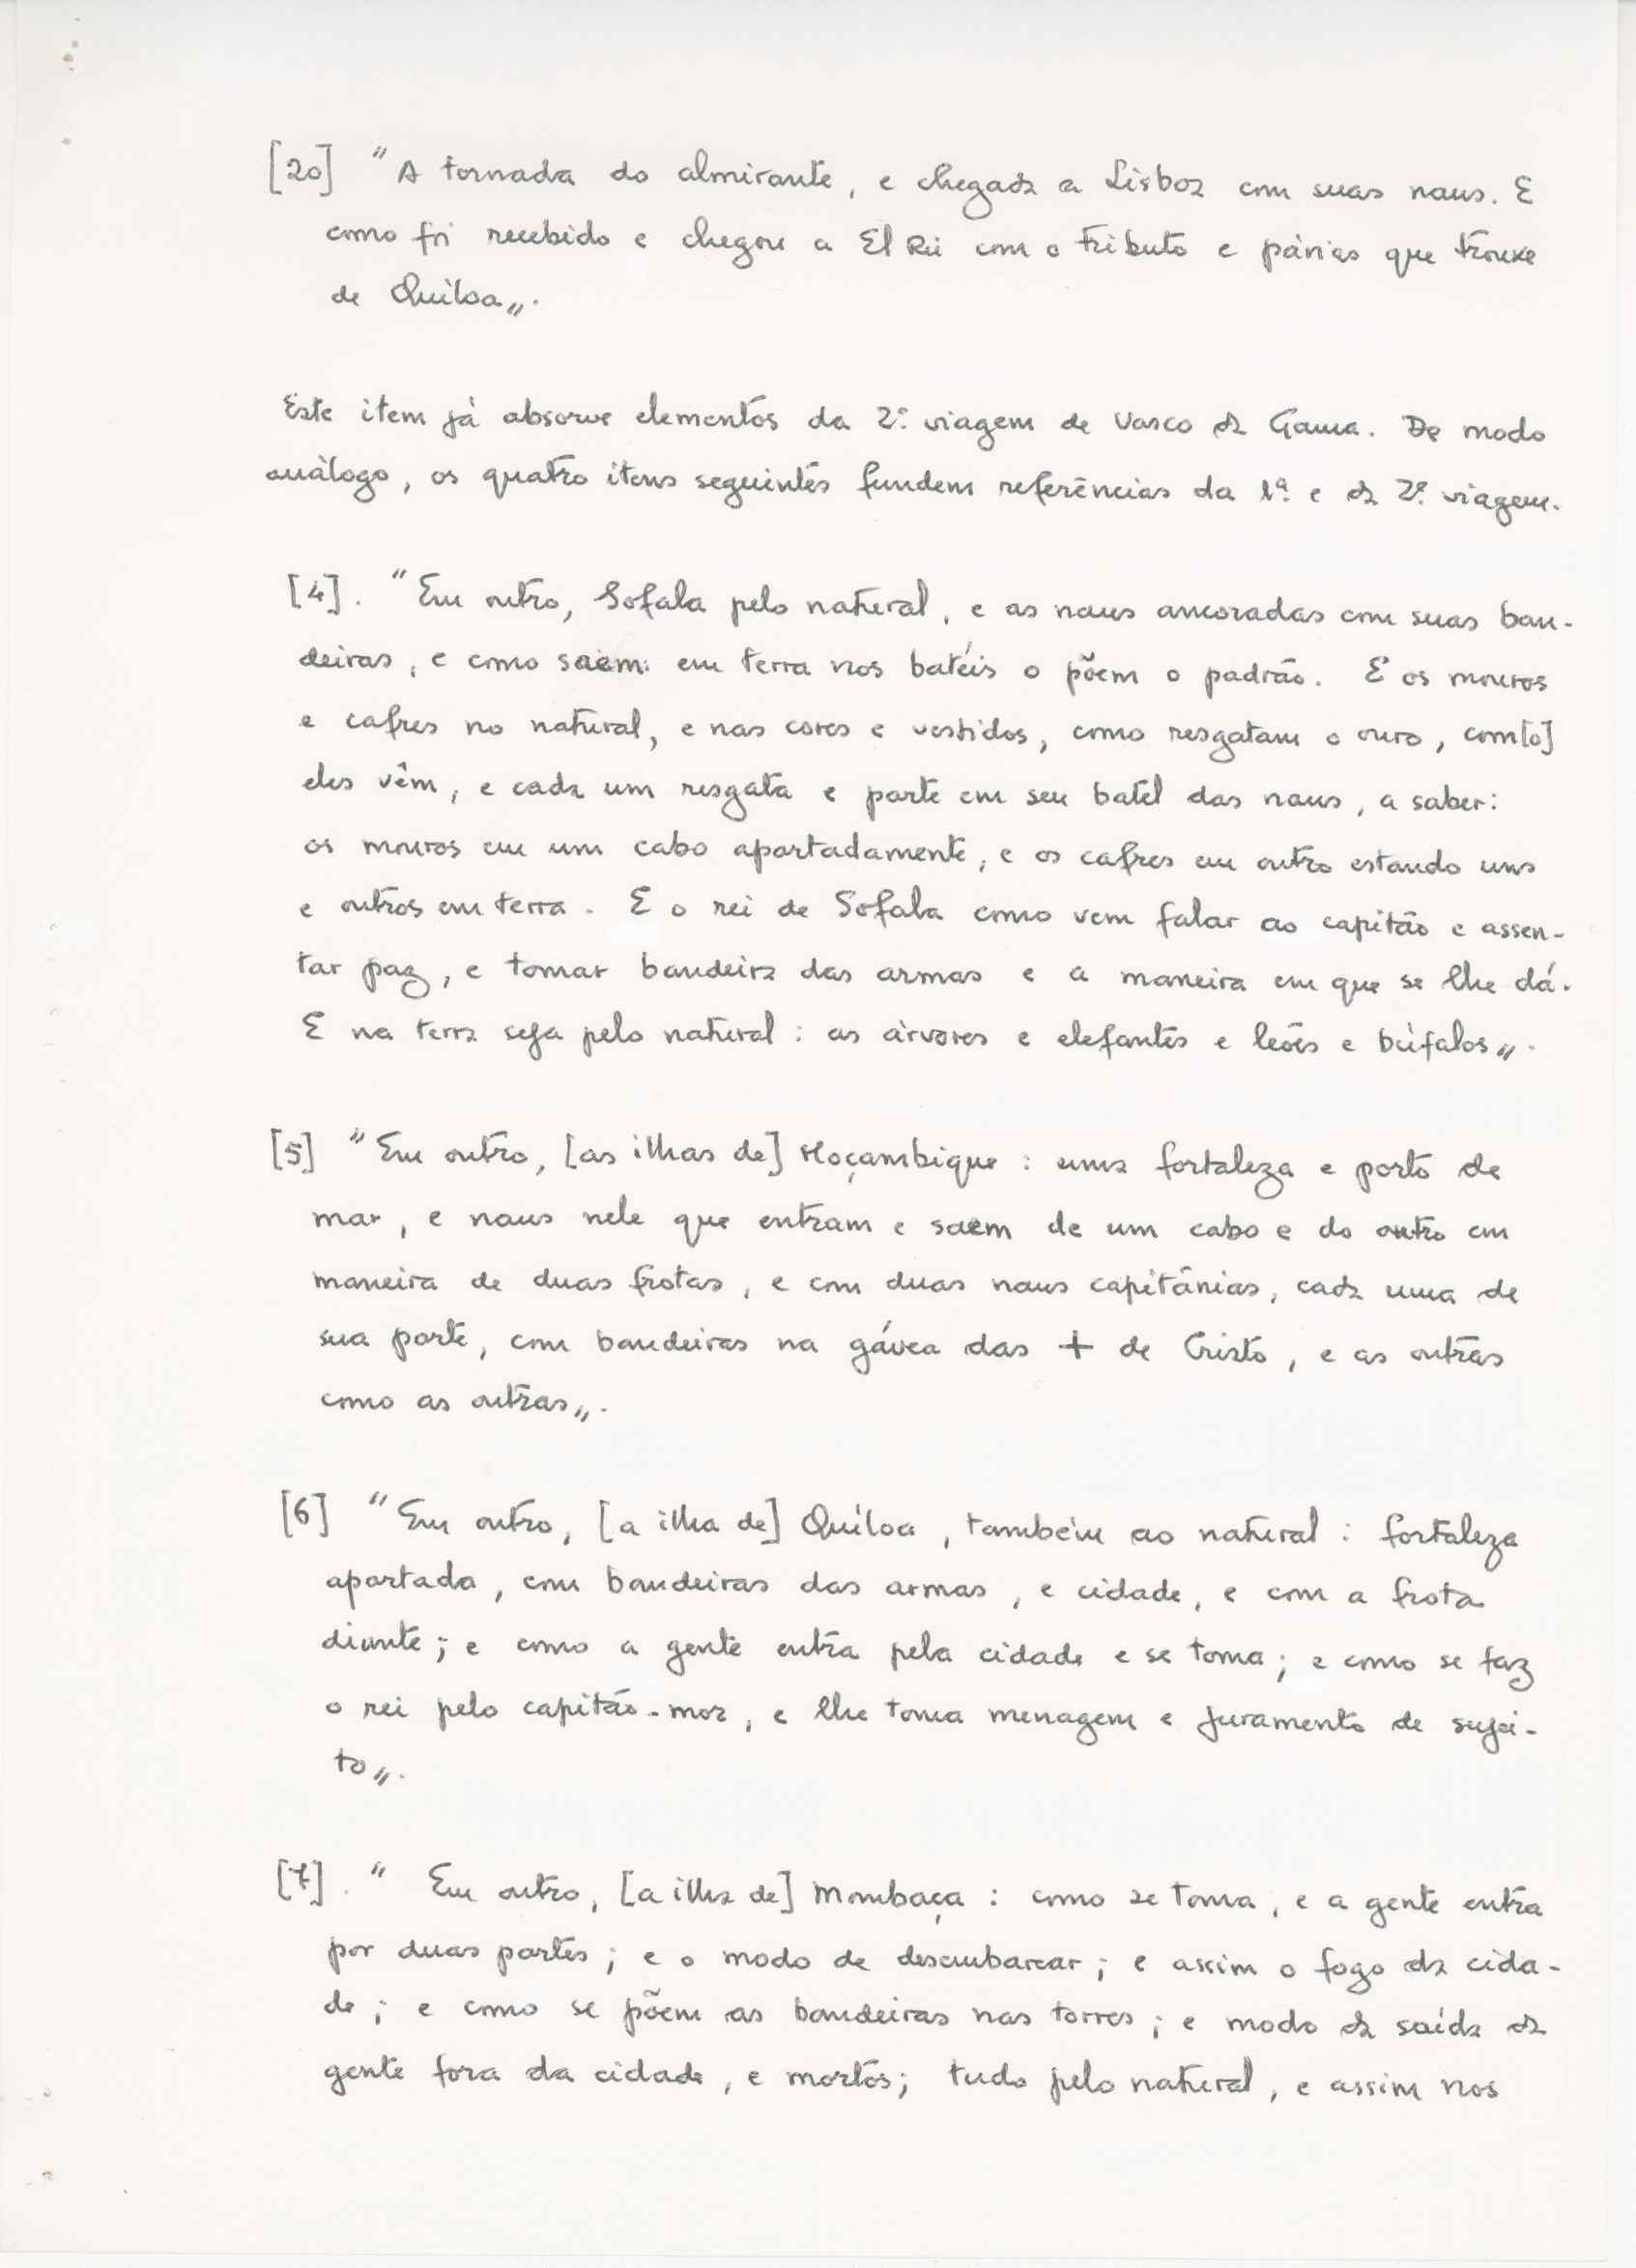 [20] "A tornada do almirante, e chegada a Lisboa com suas naus. E
como foi recebido e chegou a El Rei com o tributo e párias que trouxe
de Quiloa„.
Este item já absorve elementos da 2ª. viagem de Vasco da Gama. De modo
análogo, os quatro itens seguintes fundem referências da 1ª. e da 2ª. viagem.
[4]. "Em outro, Sofala pelo natural, e as naus ancoradas com suas ban-
deiras, e como saem em terra nos batéis o põem o padrão. E os mouros
e cafres no natural, e nas cores e vestidos, como resgatam o ouro, com[o]
eles vêm, e cada um resgata e parte em seu batel das naus, a saber:
os mouros em um cabo apartadamente, e os cafres em outro estando uns
e outros em terra. E o rei de Sofala como vem falar ao capitão e assen-
tar paz, e tomar bandeira das armas e a maneira em que se lhe dá.
E na terra seja pelo natural: as árvores e elefantes e leões e búfalos„.
[5] "Em outro, [as ilhas de] Moçambique: uma fortaleza e porto de
mar, e naus nele que entram e saem de um cabo e do outro em
maneira de duas frotas, e com duas naus capitânias, cada uma de
sua parte, com bandeiras na gávea das + de Cristo, e as outras
como as outras„.
[6] "Em outro, [a ilha de] Quíloa, também ao natural: fortaleza
apartada, com bandeiras das armas, e cidade, e com a frota
diante; e como a gente entra pela cidade e se toma; e como se faz
o rei pelo capitão-mor, e lhe toma menagem e juramento de sujei-
to„.
[7]. "Em outro, [a ilha de] Mombaça: como se toma, e a gente entra
por duas partes; e o modo de desembarcar; e assim o fogo da cida-
de; e como se põem as bandeiras nas torres; e modo da saída da
gente fora da cidade, e mortos; tudo pelo natural, e assim nos